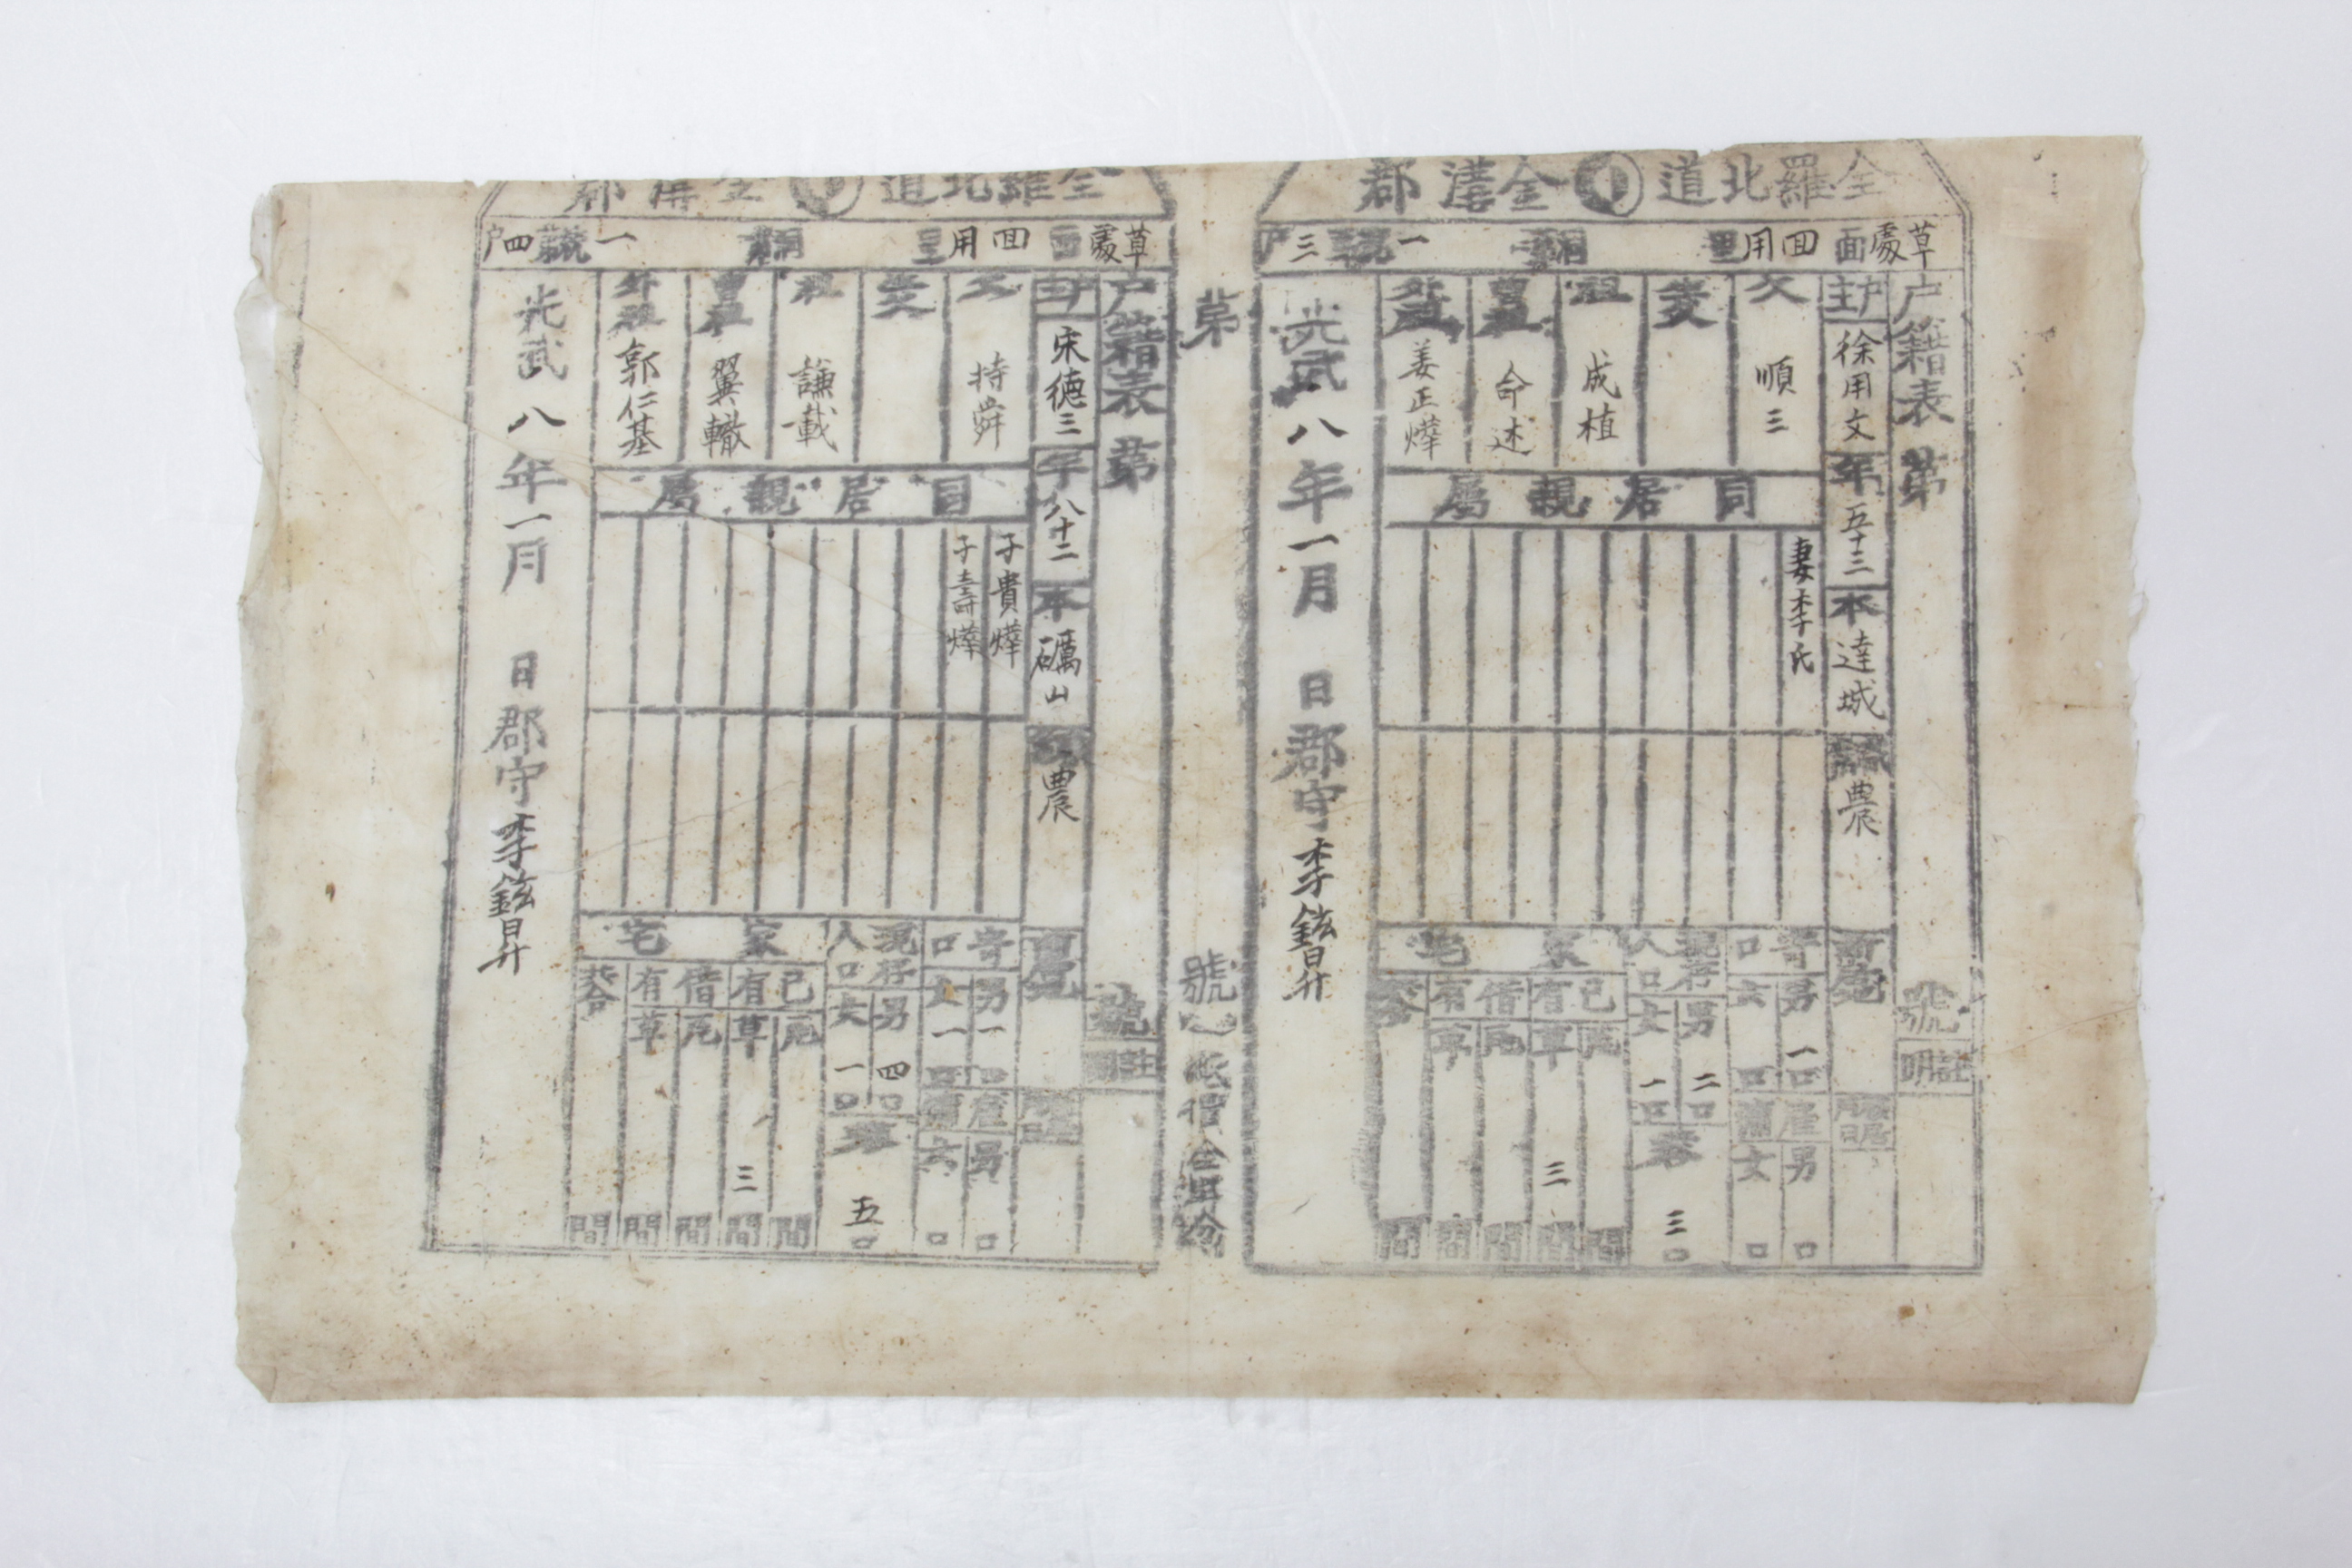 全羅北道 金溝郡
草處面 回用里 洞 一 統 三 戶
戶籍表 第 號
證明
戶主 徐用文
年 五十三
本 達城
職業 農
前居
父 順三
生父
祖 成植
曾祖 命述
外祖 姜正燁
同居親屬
妻李氏
寄口 男 一口 女 口
雇傭 男 口 女 口
現存人口 男 二口 女 一口
共 三口
家宅
己有 瓦 間 草 三 間
借有 瓦 間 草 間
共合 間
光武八年一月 日 郡守 李鉉昇
第 號
紙價金
全羅北道 金溝郡
草處面 回用里 洞 一 統 四 戶
戶籍表 第 號
證明
戶主 宋德三
年 八十二
本 礪山
職業 農
前居
父 持舜
生父
祖 謙載
曾祖 翼轍
外祖 郭仁基
同居親屬
子貴燁
子壽燁
寄口 男 一口 女 一口
雇傭 男 口 女 口
現存人口 男 四口 女 一口
共 五口
家宅
己有 瓦 間 草 三 間
借有 瓦 間 草 間
共合 間
光武八年一月 日 郡守 李鉉昇